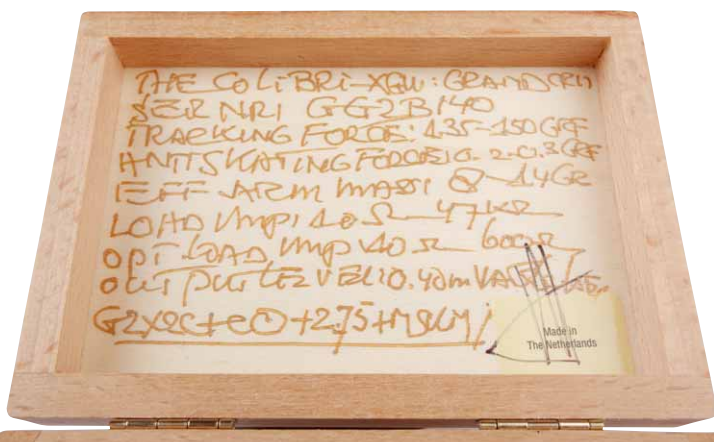 THE COLIBRI-XGW: GRAND CRU
SER NR: GG2B140
TRACKING FORCE: 1.35-1.50 GRF
ANTISKATING FORCE: 0.2-0.3 GRF
EFF ARM MASS: 8-14GR
LOAD IMP: 10 Ω - 47KΩ
OPT LOAD IMP 10 Ω - 600Ω
OUTPUT LEVEL: 0.40m
Made in
The Netherlands